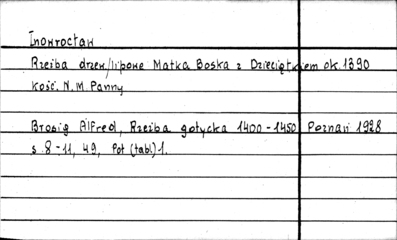 Inowrocław
Rzeźba drzew/lipowe Matka Boska z Dzieciątkiem ok. 1390
Kość. N. M. Panny
Brosig Alfred, Rzeźba gotycka 1400-1450 Poznań 1928
s. 8-11, 49, Pot (tabl) 1.